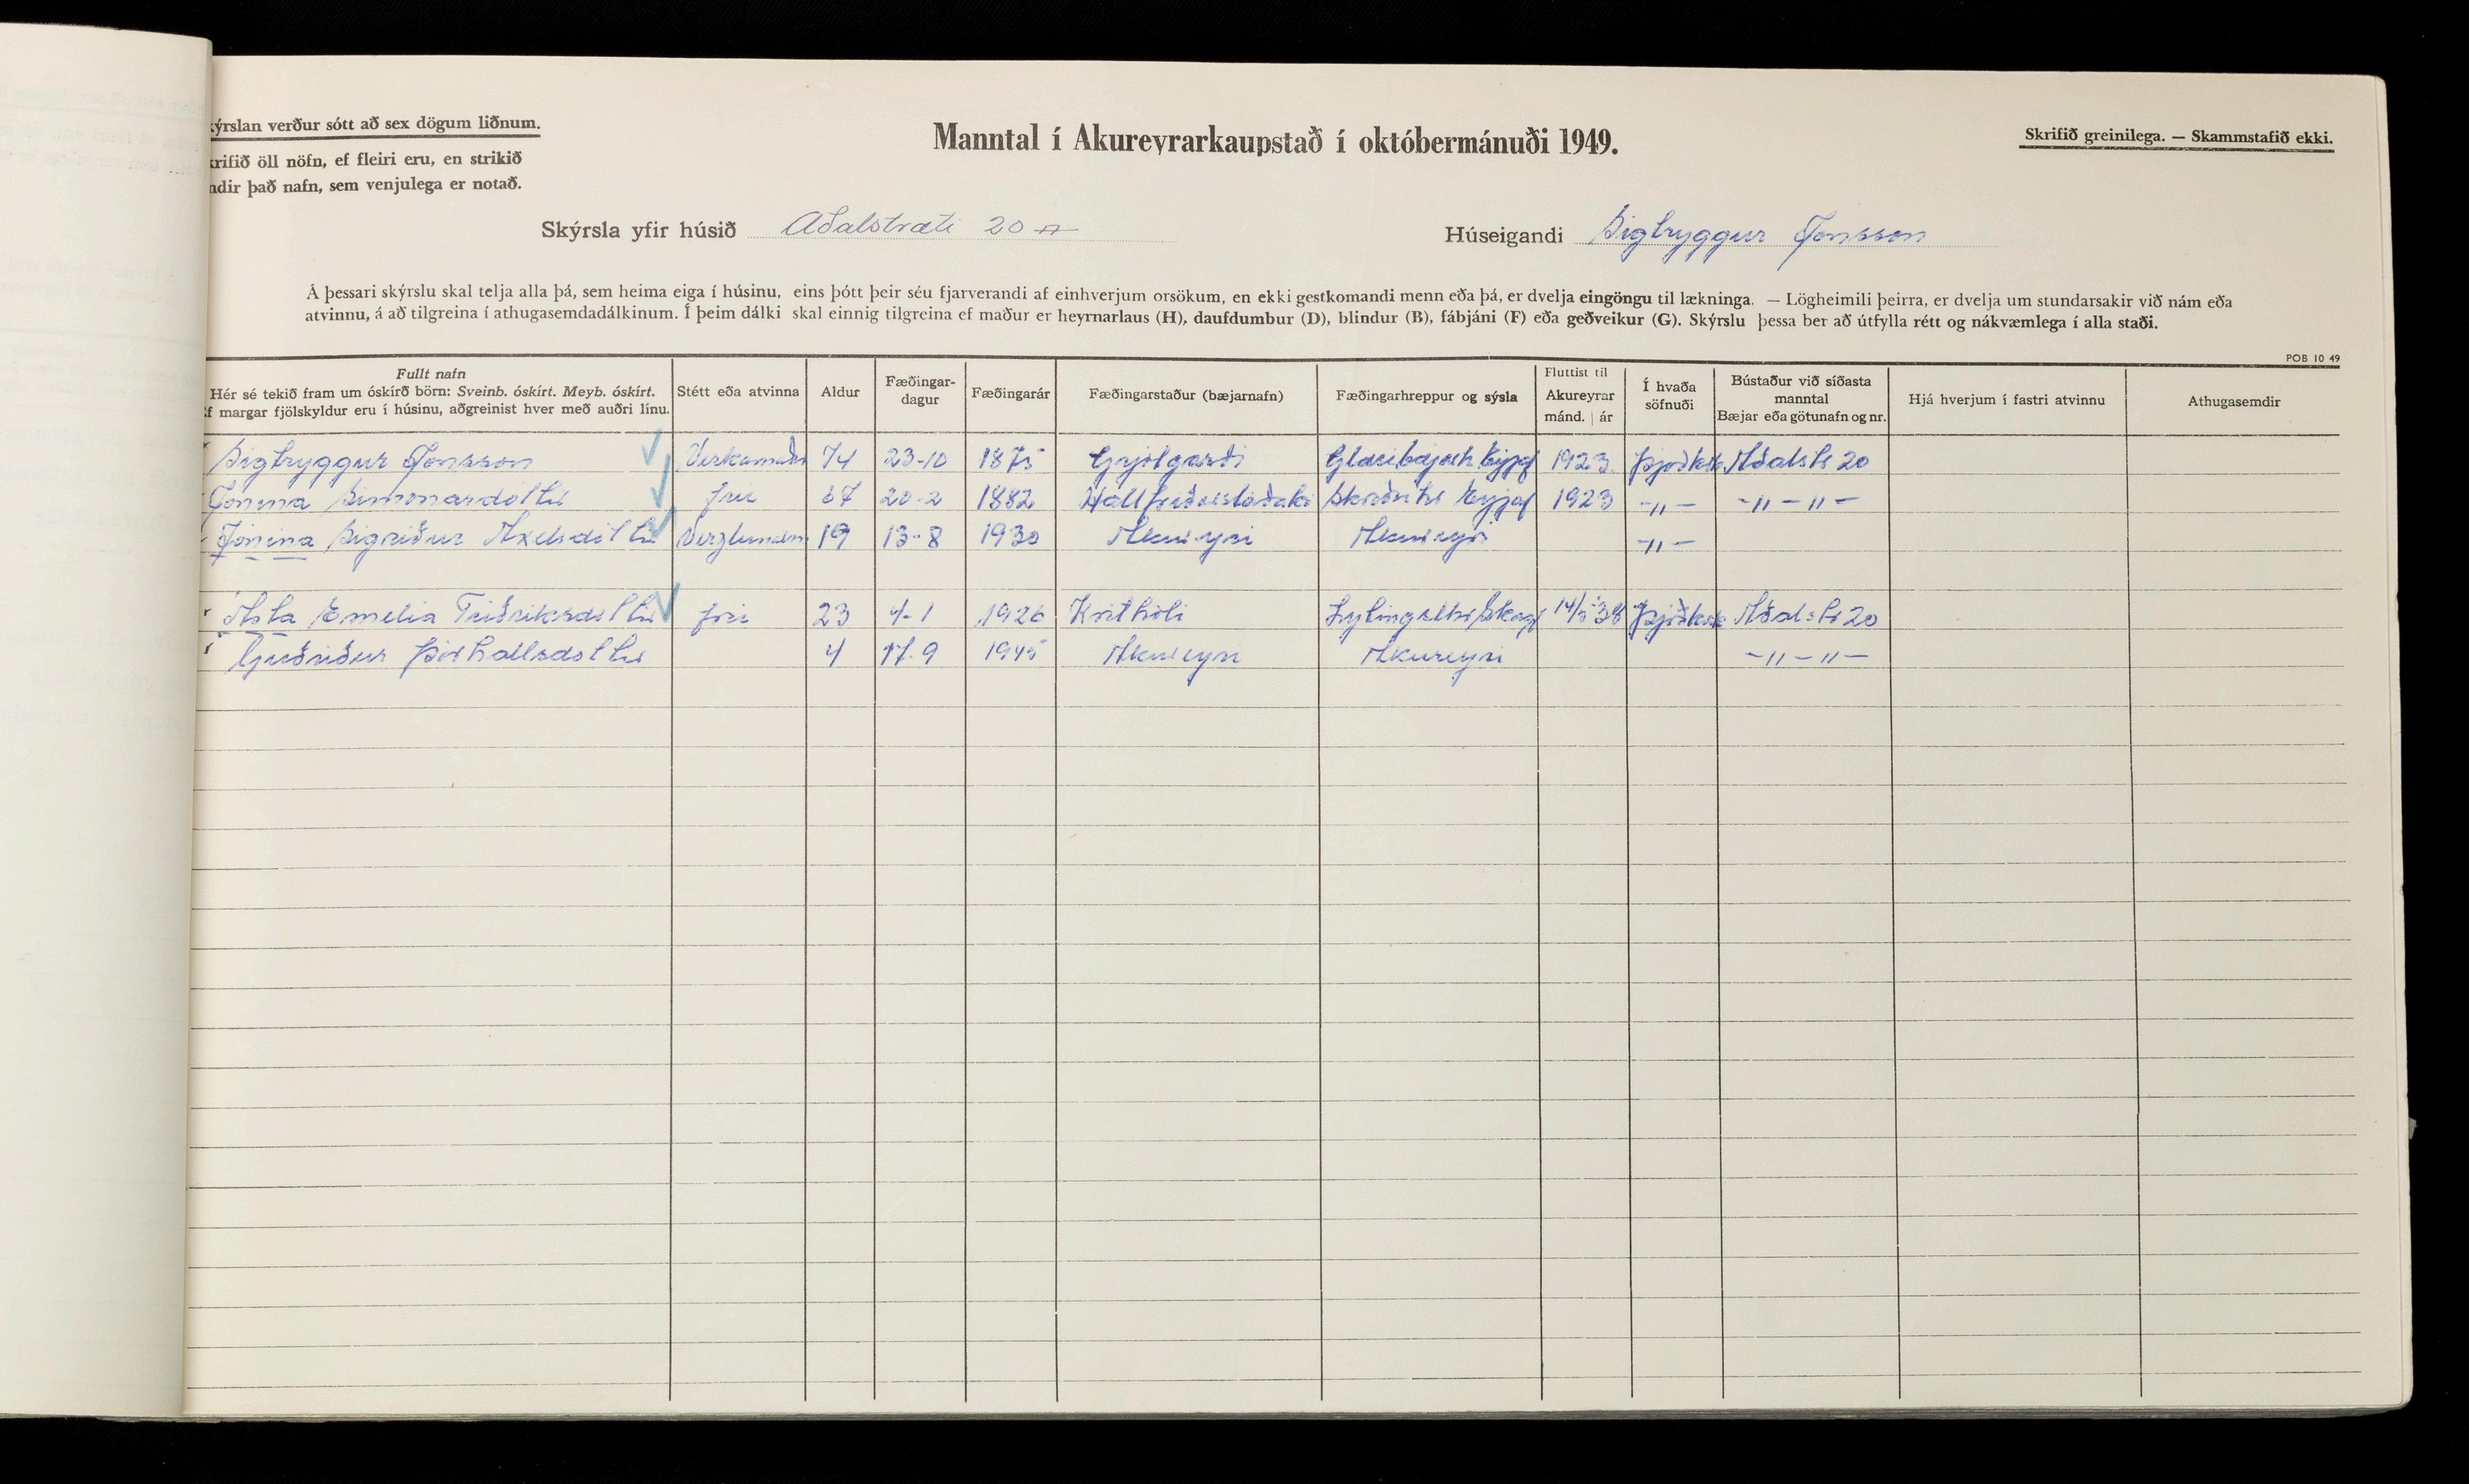 ýrslan verður sótt að sex dögum liðnum.
krifið öll nöfn, ef fleiri eru, en strikið
ndir það nafn, sem venjulega er notað.
Manntal í Akureyrarkaupstað í októbermánuði 1949.
Skrifið greinilega. — Skammstafið ekki.
Skýrsla yfir húsið Aðalstræti 20
Húseigandi Sigtryggur Jónsson
Á þessari skýrslu skal telja alla þá, sem heima eiga í húsinu, eins þótt þeir séu fjarverandi af einhverjum orsökum, en ekki gestkomandi menn eða þá, er dvelja eingöngu til lækninga. — Lögheimili þeirra, er dvelja um stundarsakir við nám eða
atvinnu, á að tilgreina í athugasemdadálkinum. Í þeim dálki skal einnig tilgreina ef maður er heyrnarlaus (H), daufdumbur (D), blindur (B), fábjáni (F) eða geðveikur (G). Skýrslu þessa ber að útfylla rétt og nákvæmlega í alla staði.
POB 10 49
Fullt nafn
Hér sé tekið fram um óskírð börn: Sveinb. óskírt. Meyb. óskírt.
f margar fjölskyldur eru í húsinu, aðgreinist hver með auðri línu.
Stétt eða atvinna
Aldur
Fæðingar-
dagur
Fæðingarár
Fæðingarstaður (bæjarnafn)
Fæðingarhreppur og sýsla
Fluttist til
Akureyrar
mánd. | ár
Í hvaða
söfnuði
Bústaður við síðasta
manntal
Bæjar eða götunafn og nr.
Hjá hverjum í fastri atvinnu
Athugasemdir
Sigtryggur Jónsson Verkamaður 74 23-10 1875 Grjótgarði Glæsibæjarh Eyjaf 1923 Þjóðkirk Aðalstr 20
Jónína Símonardóttir frú 67 20-2 1882 Skriðuhr Eyjaf 1923 -"- -"-"-
Jónína Sigríður Axelsdóttir 19 13-8 1930 Akureyri Akureyri -"-
Ásta Emelía Friðriksdóttir frú 23 4-1 1926 Kríthóli Lýtingssthr Skagf Þjóðkirk Aðalstr 20
Guðríður Þórhallsdóttir 4 17-9 1945 Akureyri Akureyri -"-"-